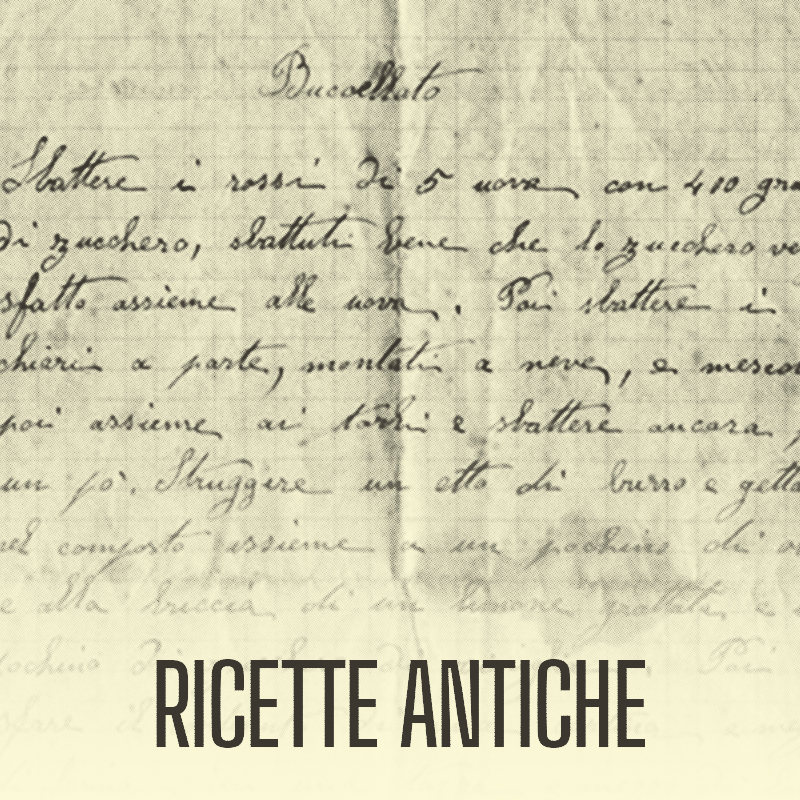 Buccellato
Sbattere i rossi di 5 uova con 410 gra
di zucchero, sbattuti bene che lo zucchero ve
sfatto assieme alle uova. Poi sbattere i
chiari a parte, montati a neve, e mescol
poi assieme ai torli e sbattere ancora
un pò. Struggere un etto di burro e getta
nel composto assieme a un pochino di
e alla buccia di un limone grattati, e
tochino di Poi
il
RICETTE ANTICHE